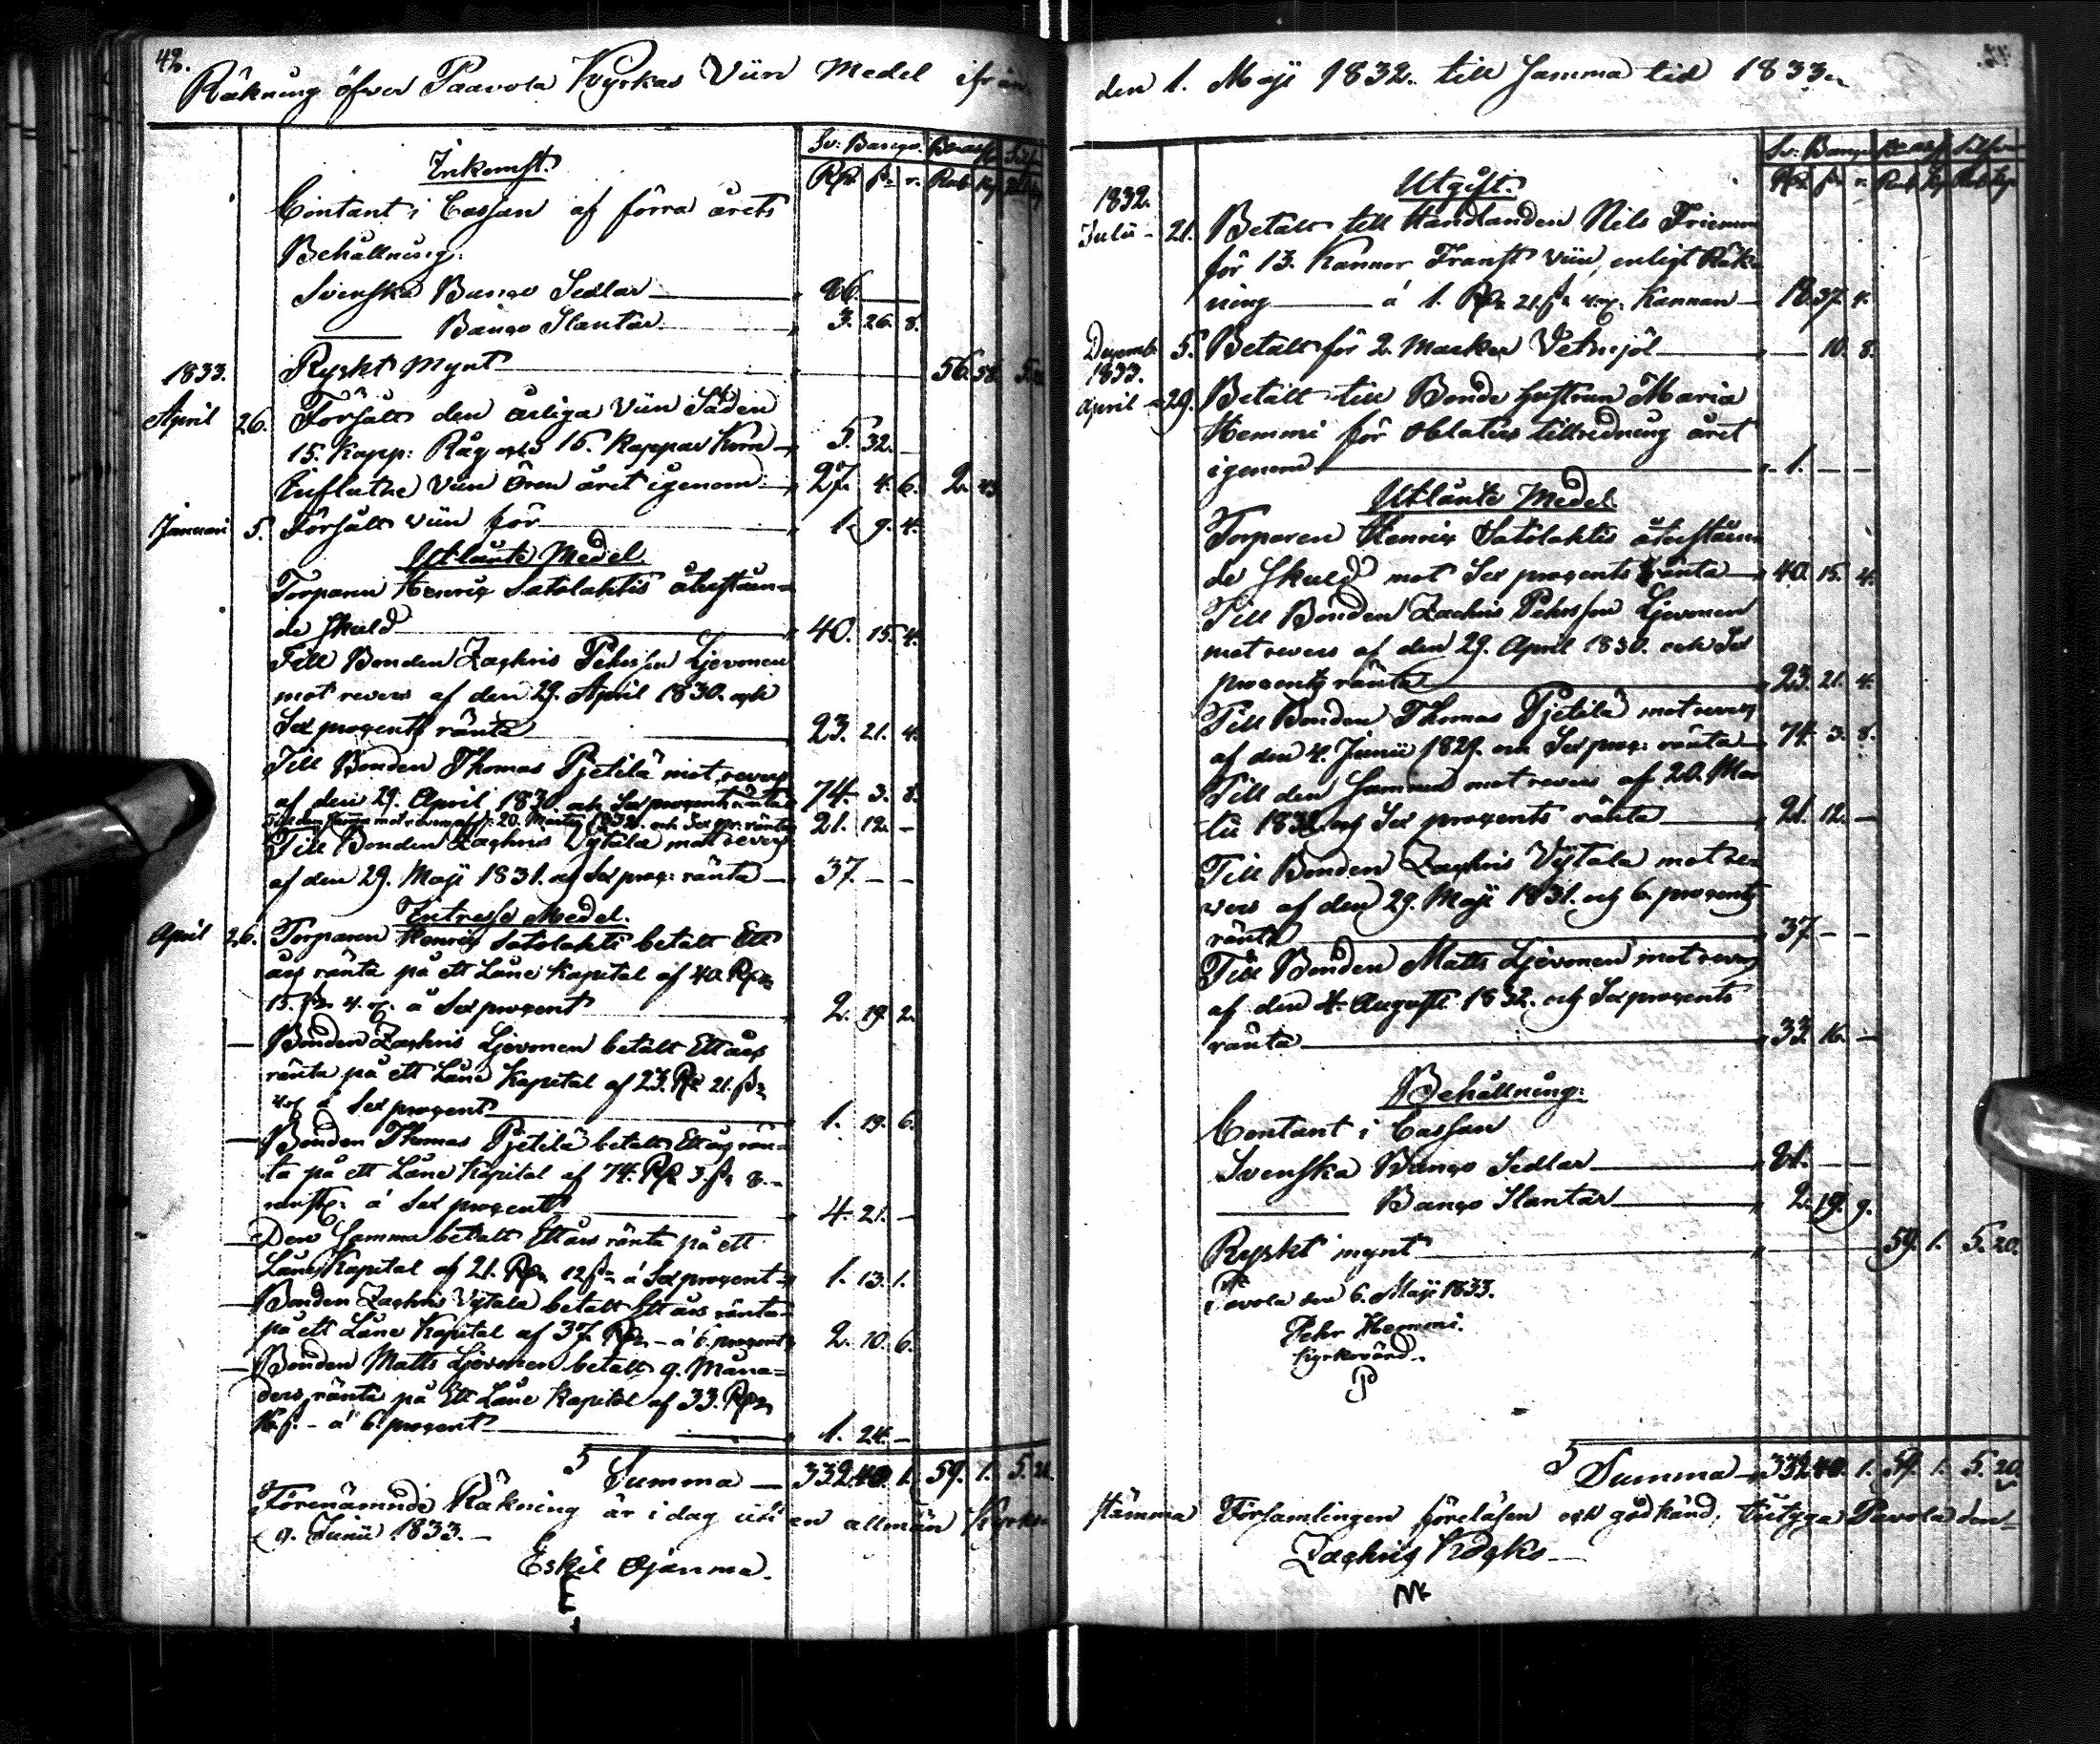 42.
Räkning öfver Paavola Kyrkas Viin Medel ifrån
Sv: Banco. Banco Ass: Silfver
Inkomst.
Rdr. ß. r. Rub. Kop.
Contant i Cassan af förra årets
Behållning:
Svenska Banco Sedlar 96. — —
Banco Slantar 3. 26. 8.
1833. Ryskt Mynt 56. 58. 5. 20.
April 26. Försålt den årliga Viin Säden
15. Kapp: Råg och 15. Kappar Korn 5. 32. —
Influtne Viin Ören året igenom 27. 4. 6. 2. 43
Januari 5. Försålt viin för 1. 9. 4.
Utlånte Medel.
Torparen Henric Satolahtis återståen=
de skuld 40. 15. 4.
Till Bonden Zachris Pehrsson Ljevonen
mot revers af den 29. April 1830. och
Sex procents ränta 23. 21. 4.
Till Bonden Thomas Pjetilä mot revers
af den 29. April 1830. och Sex procents ränta 74. 3. 8.
Till den samma mot revers af d: 20. Martii 1832. och Sex pr. ränta 21. 12. —
Till Bonden Zachris Vytala mot revers
af den 29. Maji 1831. och Sex proc: ränta 37. — —
Intresse Medel.
April 26. Torparen Henric Satolahti betalt Ett
års ränta på ett Låne Kapital af 40. Rdr
15. ß. 4. r. å Sex procent 2. 19. 2.
— Bonden Zachris Ljevonen betalt Ett års
ränta på ett Låne Kapital af 23. Rdr 21. ß.
4. r. å Sex procent 1. 19. 6.
— Bonden Thomas Pjetilä betalt Ett års rän=
ta på ett Låne Kapital af 74. Rdr 3. ß. 8.
å Sex procent 4. 21. —
— Den samma betalt Ett års ränta på ett
Låne Kapital af 21. Rdr 12 ß. å Sex procent 1. 13. 1.
— Bonden Zachris Vytala betalt Ett års ränta
på ett Låne Kapital af 37. Rdr — å 6. procent 2. 10. 6.
— Bonden Matts Ljevonen betalt 9. Måna=
ders ränta på Ett Låne Kapital af 33. Rdr
16. ß. — å 6. procent 1. 24. —
Summa 332. 40. 1. 59. 1. 5. 20.
Förenämnde Räkning är i dag uti en allmän Kyrko
9. Junii 1833. —
Eskil Ojanma.
den 1. Maji 1832. till samma tid 1833.
Sv. Banco Banco Ass: Silfver
Utgift.
Rdr. ß. r. Rub. Kop. Rub. Kop.
1832.
Julii 21. Betalt till Handlanden Nils Frieman
för 13. Kannor Franst viin, enligt Räk=
ning å 1. Rdr 21. ß. 4. r. Kannan 18. 37. 4.
Decemb. 5. Betalt för 2. Marker Vetmjöl — 10. 8.
1833.
April 29. Betalt till Bonde hustrun Maria
Hemmi för Oblaters tillredning året
igenom 1. — —
Utlånte Medel
Torparen Henric Satolahtis återståen
de skuld mot Sex procents ränta 40. 15. 4.
Till Bonden Zachris Pehrsson Ljevonen
mot revers af den 29. April 1830. och Sex
procents ränta 23. 21. 4.
Till Bonden Thomas Pjetilä mot revers
af den 4. Junii 1829. och Sex proc: ränta 74. 3. 8.
Till den samma mot revers af 20. Mar
tii 1832. och Sex procents ränta 21. 12. —
Till Bonden Zachris Vytala mot re=
vers af den 29. Maji 1831. och 6. procents
ränta 37 — —
Till Bonden Matts Ljevonen mot revers
af den 4. Augusti 1832. och Sex procents
ränta 33. 16. —
Behållning:
Contant i Cassan
Svenska Banco Sedlar 81. — —
Banco Slantar 2. 19. 9.
Ryskt mynt 59. 1. 5. 20.
Pavola den 6. Maji 1833.
Pehr Hemmi.
Kyrkovärd.
P
Summa 332. 40. 1. 59. 1. 5. 20.
stämma Församlingen föreläsen och godkänd; Pavola den
Zachris